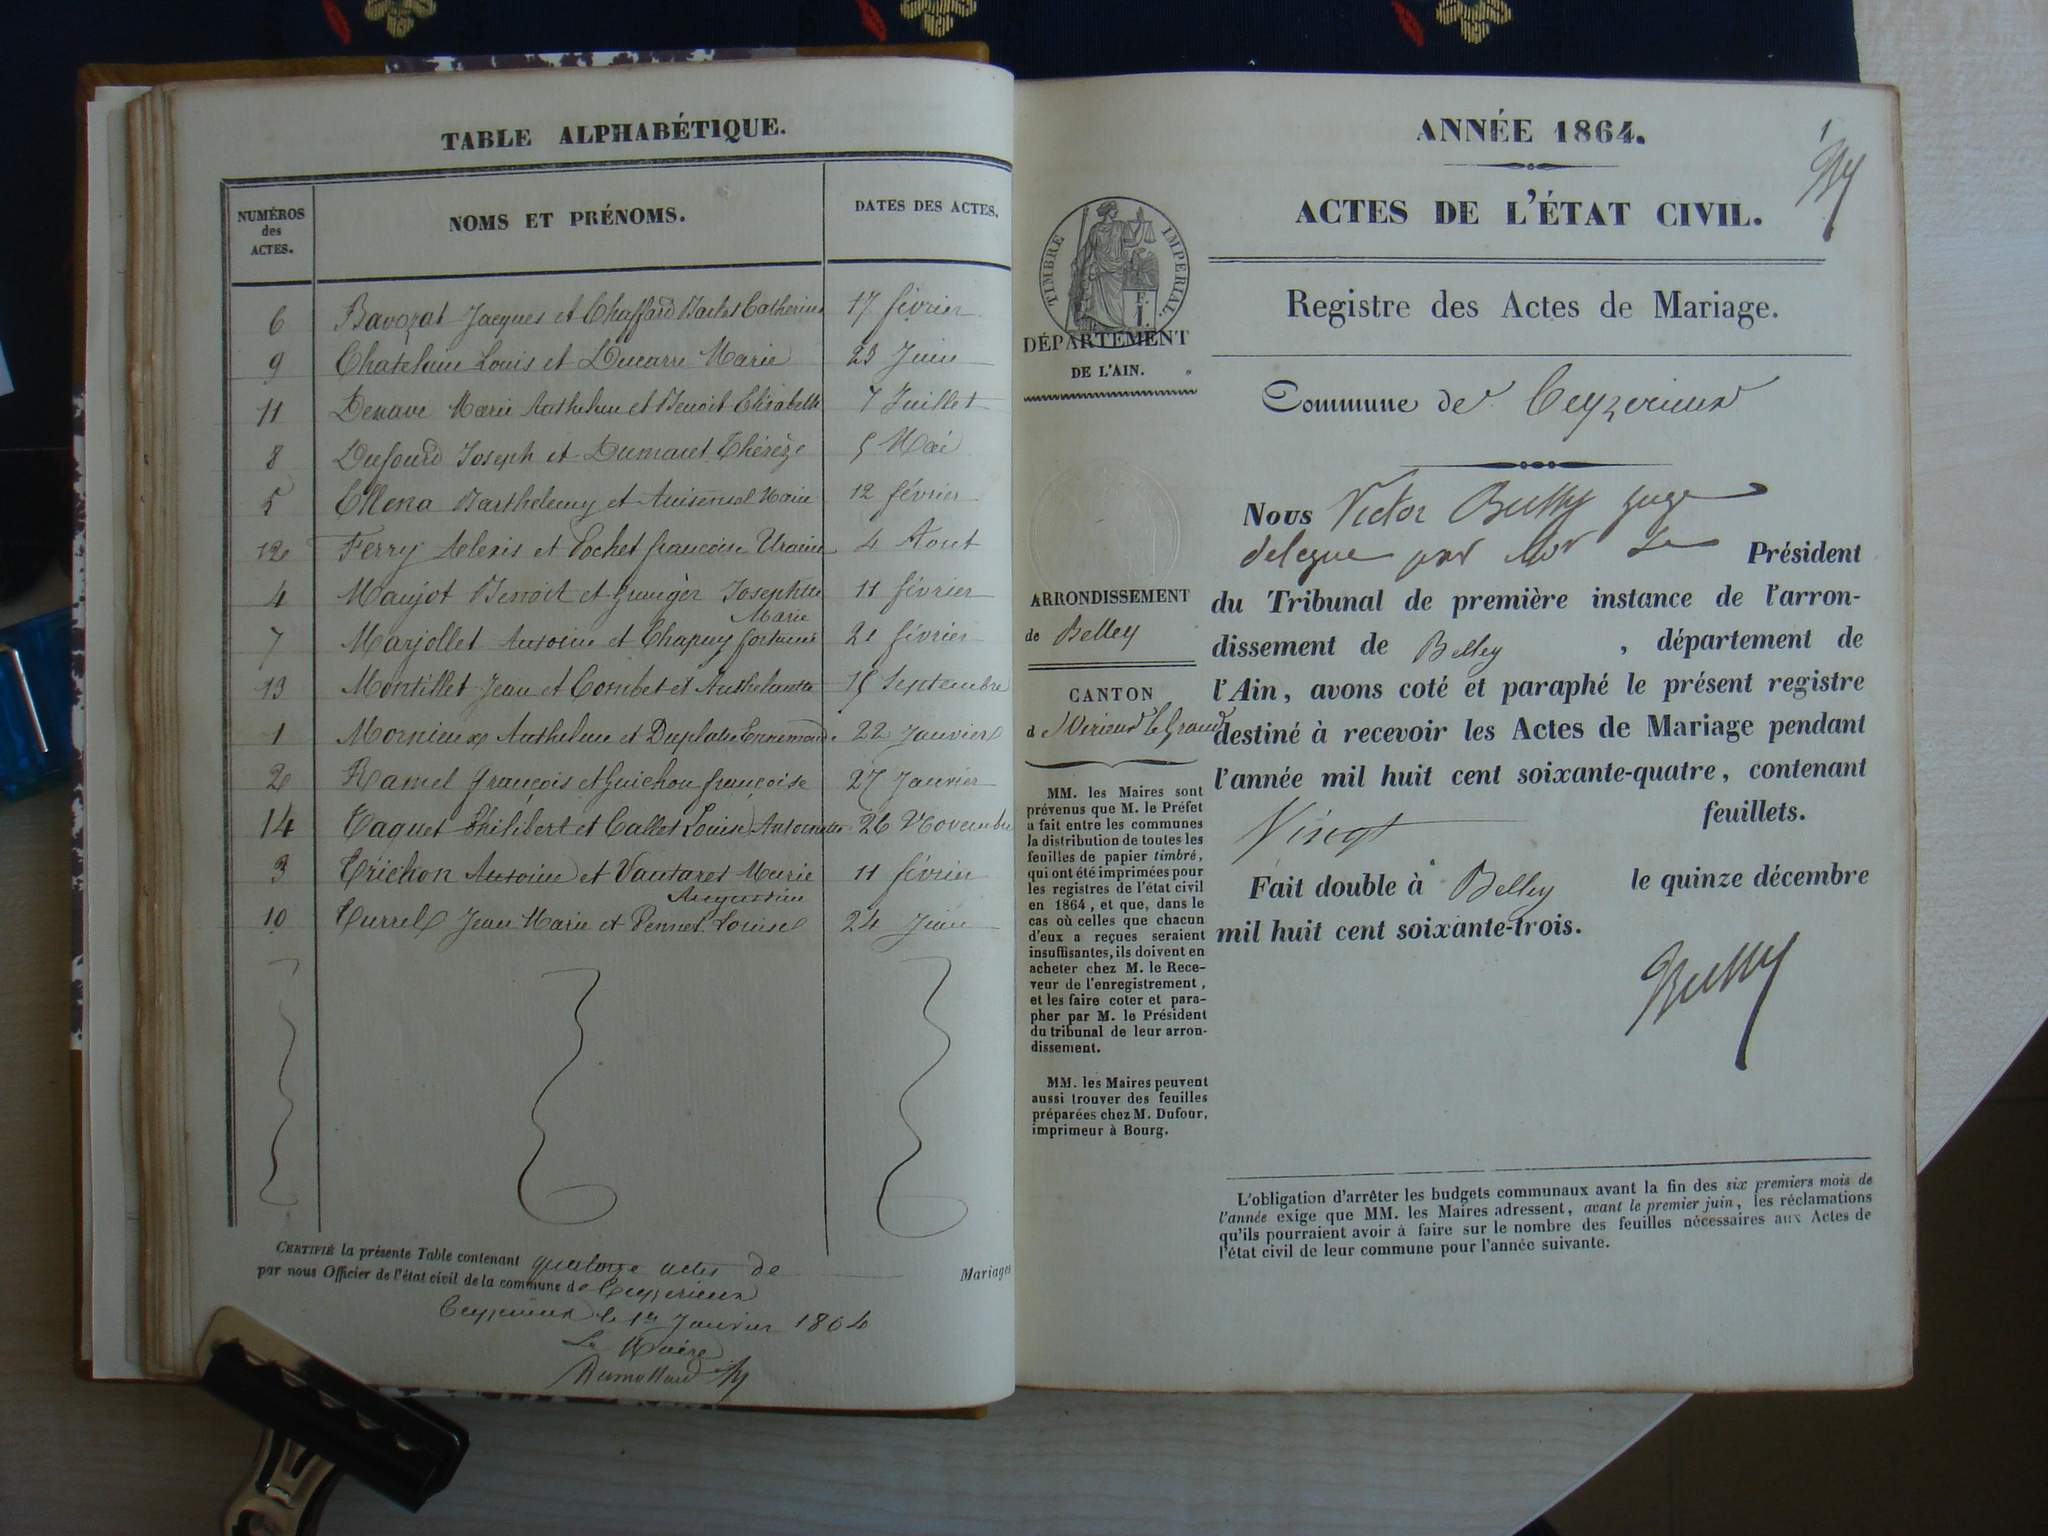 TABLE ALPHABÉTIQUE.
NUMÉROS
des
ACTES.
NOMS ET PRÉNOMS.
DATES DES ACTES.
6 Bavozat Jacques et Chaffard Catherine 17 février
9 Chatelain Louis et Ducarre Marie 23 Juin
11 Denave Marie Anthelme et Benoit Elisabeth 7 Juillet
8 Dufourd Joseph et Dumaret Thérèze 5 Mai
5 Ellena Barthelemy et Marie 12 février
12 Ferry Alexis et Pochet francoise 4 Aout
4 Maujot Benoit et Josephte 11 février
Marie
7 Marjollet Antoine et Chapuy 21 février
13 Montillet Jean et Combet 15 Septembre
1 Mornieux Anthelme et 22 Janvier
2 Ramel françois et Guichon françoise 27 Janvier
14 Taquet Philibert et Callet Louise Antoinette 26 Novembre
3 Trichon Antoine et Vautaret Marie 11 février
Augustine
10 Turrel Jean Marie et Pennet Louise 24 Juin
CERTIFIÉ la présente Table contenant quatorze actes de Mariages
par nous Officier de l'état civil de la commune de Ceyzerieux
Ceyzerieux le 1er Janvier 1864
Le Maire
ANNÉE 1864.
1
ACTES DE L'ÉTAT CIVIL.
TIMBRE IMPERIAL.
Registre des Actes de Mariage.
DÉPARTEMENT
DE L'AIN.
Commune de Ceyzerieux
ARRONDISSEMENT
de Belley
CANTON
d Virieux le Grand
MM. les Maires sont
prévenus que M. le Préfet
a fait entre les communes
la distribution de toutes les
feuilles de papier timbré,
qui ont été imprimées pour
les registres de l'état civil
en 1864, et que, dans le
cas où celles que chacun
d'eux a reçues seraient
insuffisantes, ils doivent en
acheter chez M. le Rece-
veur de l'enregistrement,
et les faire coter et para-
pher par M. le Président
du tribunal de leur arron-
dissement.
MM. les Maires peuvent
aussi trouver des feuilles
préparées chez M. Dufour,
imprimeur à Bourg.
Nous Victor juge
delegue par Mr Le Président
du Tribunal de première instance de l'arron-
dissement de Belley, département de
l'Ain, avons coté et paraphé le présent registre
destiné à recevoir les Actes de Mariage pendant
l'année mil huit cent soixante-quatre, contenant
Vingt feuillets.
Fait double à Belley le quinze décembre
mil huit cent soixante-trois.
L'obligation d'arrêter les budgets communaux avant la fin des six premiers mois de
l'année exige que MM. les Maires adressent, avant le premier juin, les réclamations
qu'ils pourraient avoir à faire sur le nombre des feuilles nécessaires aux Actes de
l'état civil de leur commune pour l'année suivante.